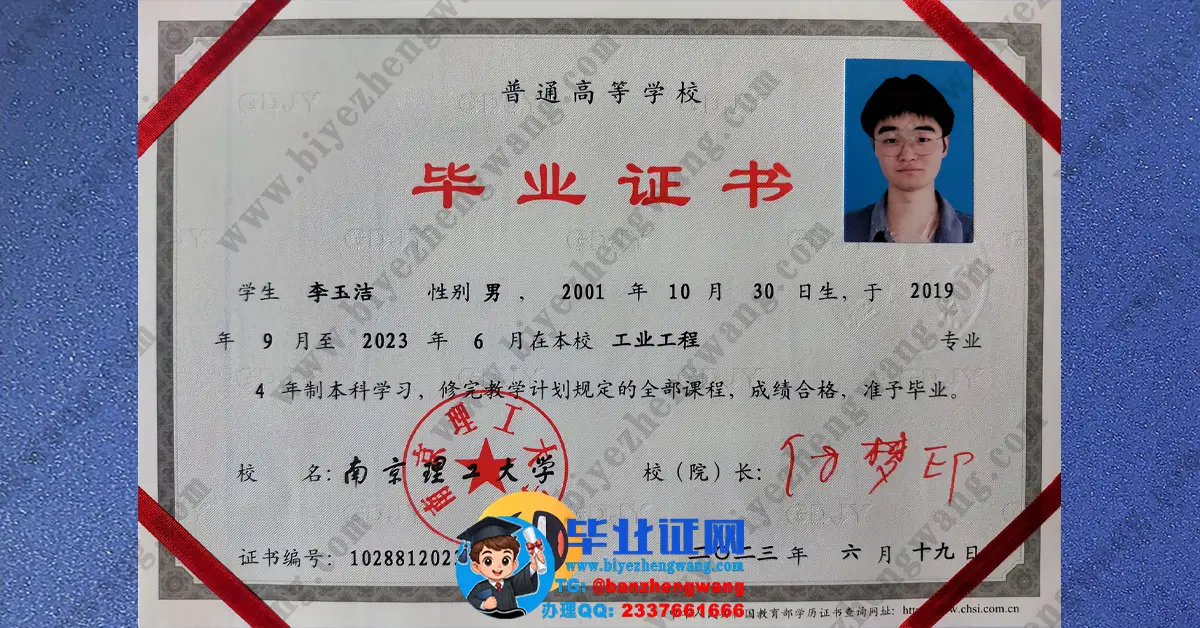 普通高等学校
毕业证书
学生 李玉洁 性别 男 ， 2001 年 10 月 30 日生，于 2019
年 9 月至 2023 年 6 月在本校 工业工程 专业
4 年制本科学习，修完教学计划规定的全部课程，成绩合格，准予毕业。
校 名：南京理工大学 校（院）长：
南京理工大
毕业证网
www.biyezhengwang.com
证书编号：102881202 二〇二三 年 六 月 十九 日
TG: @banzhengwang
办理QQ: 2337661666
国教育部学历证书查询网址：http www.chsi.com.cn
www.biyezhengwang.com